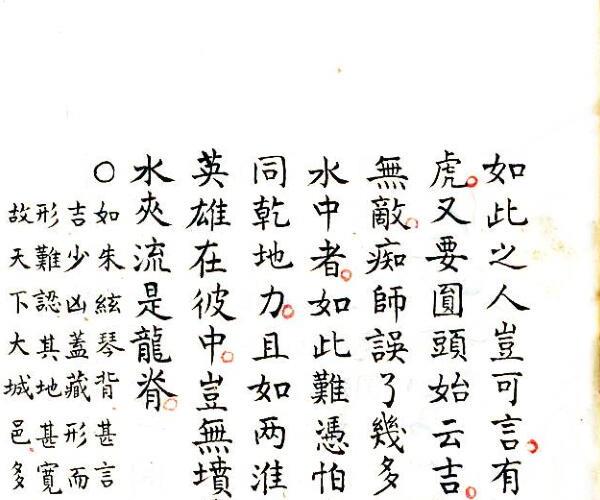 如此之人豈可言有
虎又要圓頭始云吉
無敵痴師誤了幾多
水中者如此難憑怕
同乾地力且如两淮
英雄在彼中豈無墳
水夾流是龍脊
○如朱絃琴背甚言
吉少凶蓋藏形而
形難認其地甚寬
故天下大城邑多